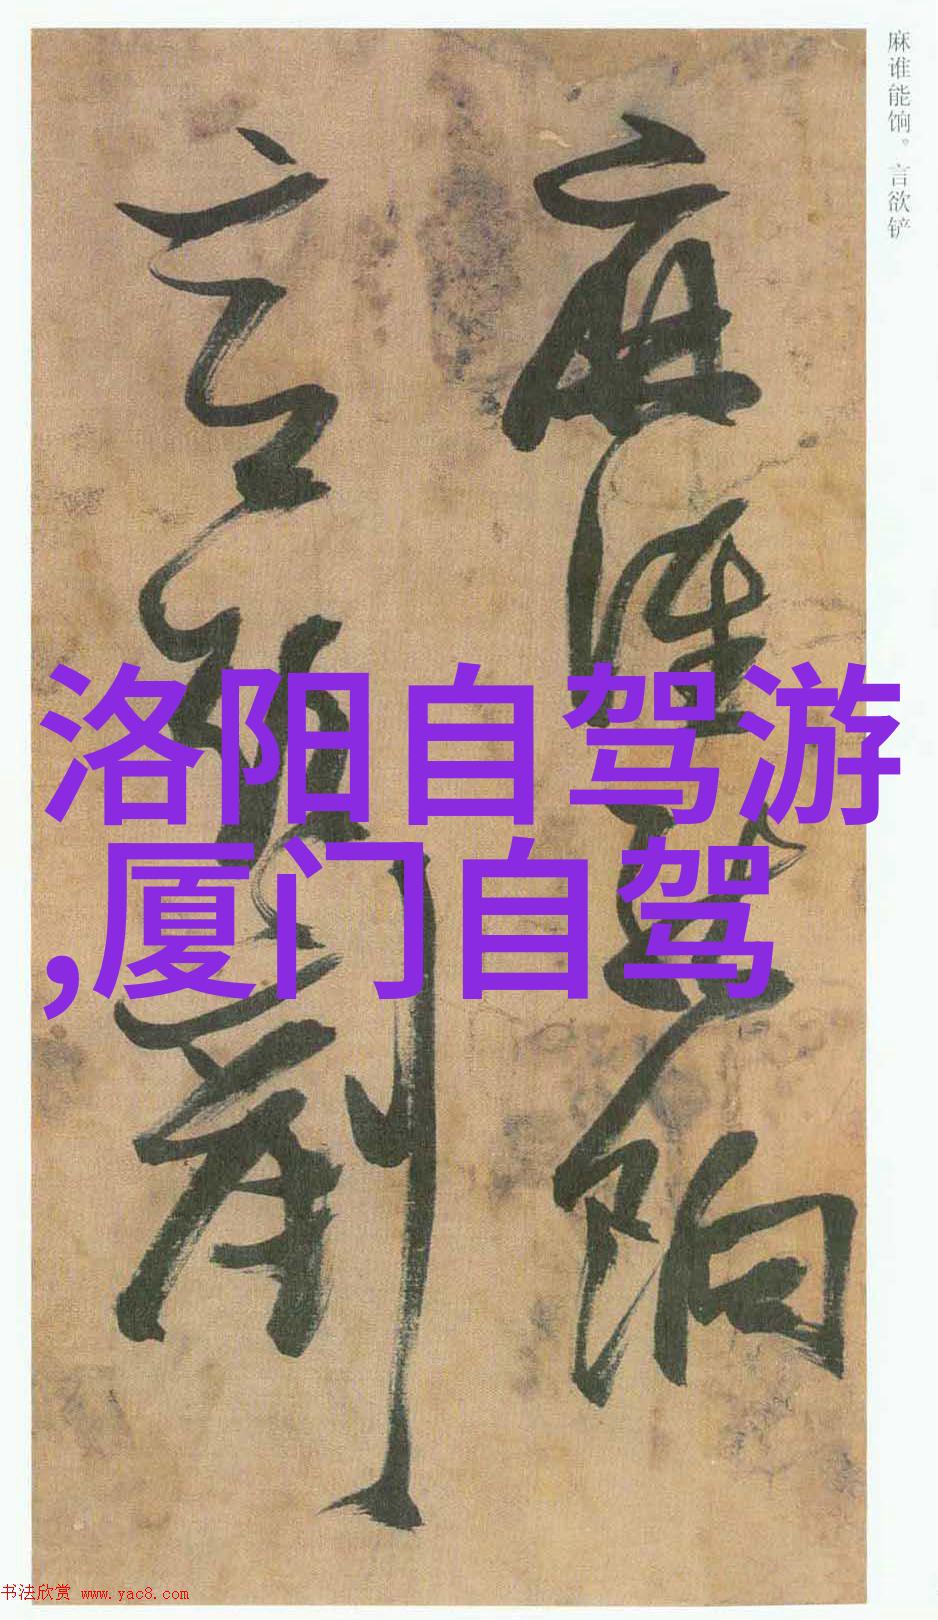 麻谁能饷。言欲铲
麻谁能饷
言欲剷
洛阳自驾游
,厦门自驾
书法欣赏 www.yac8.com